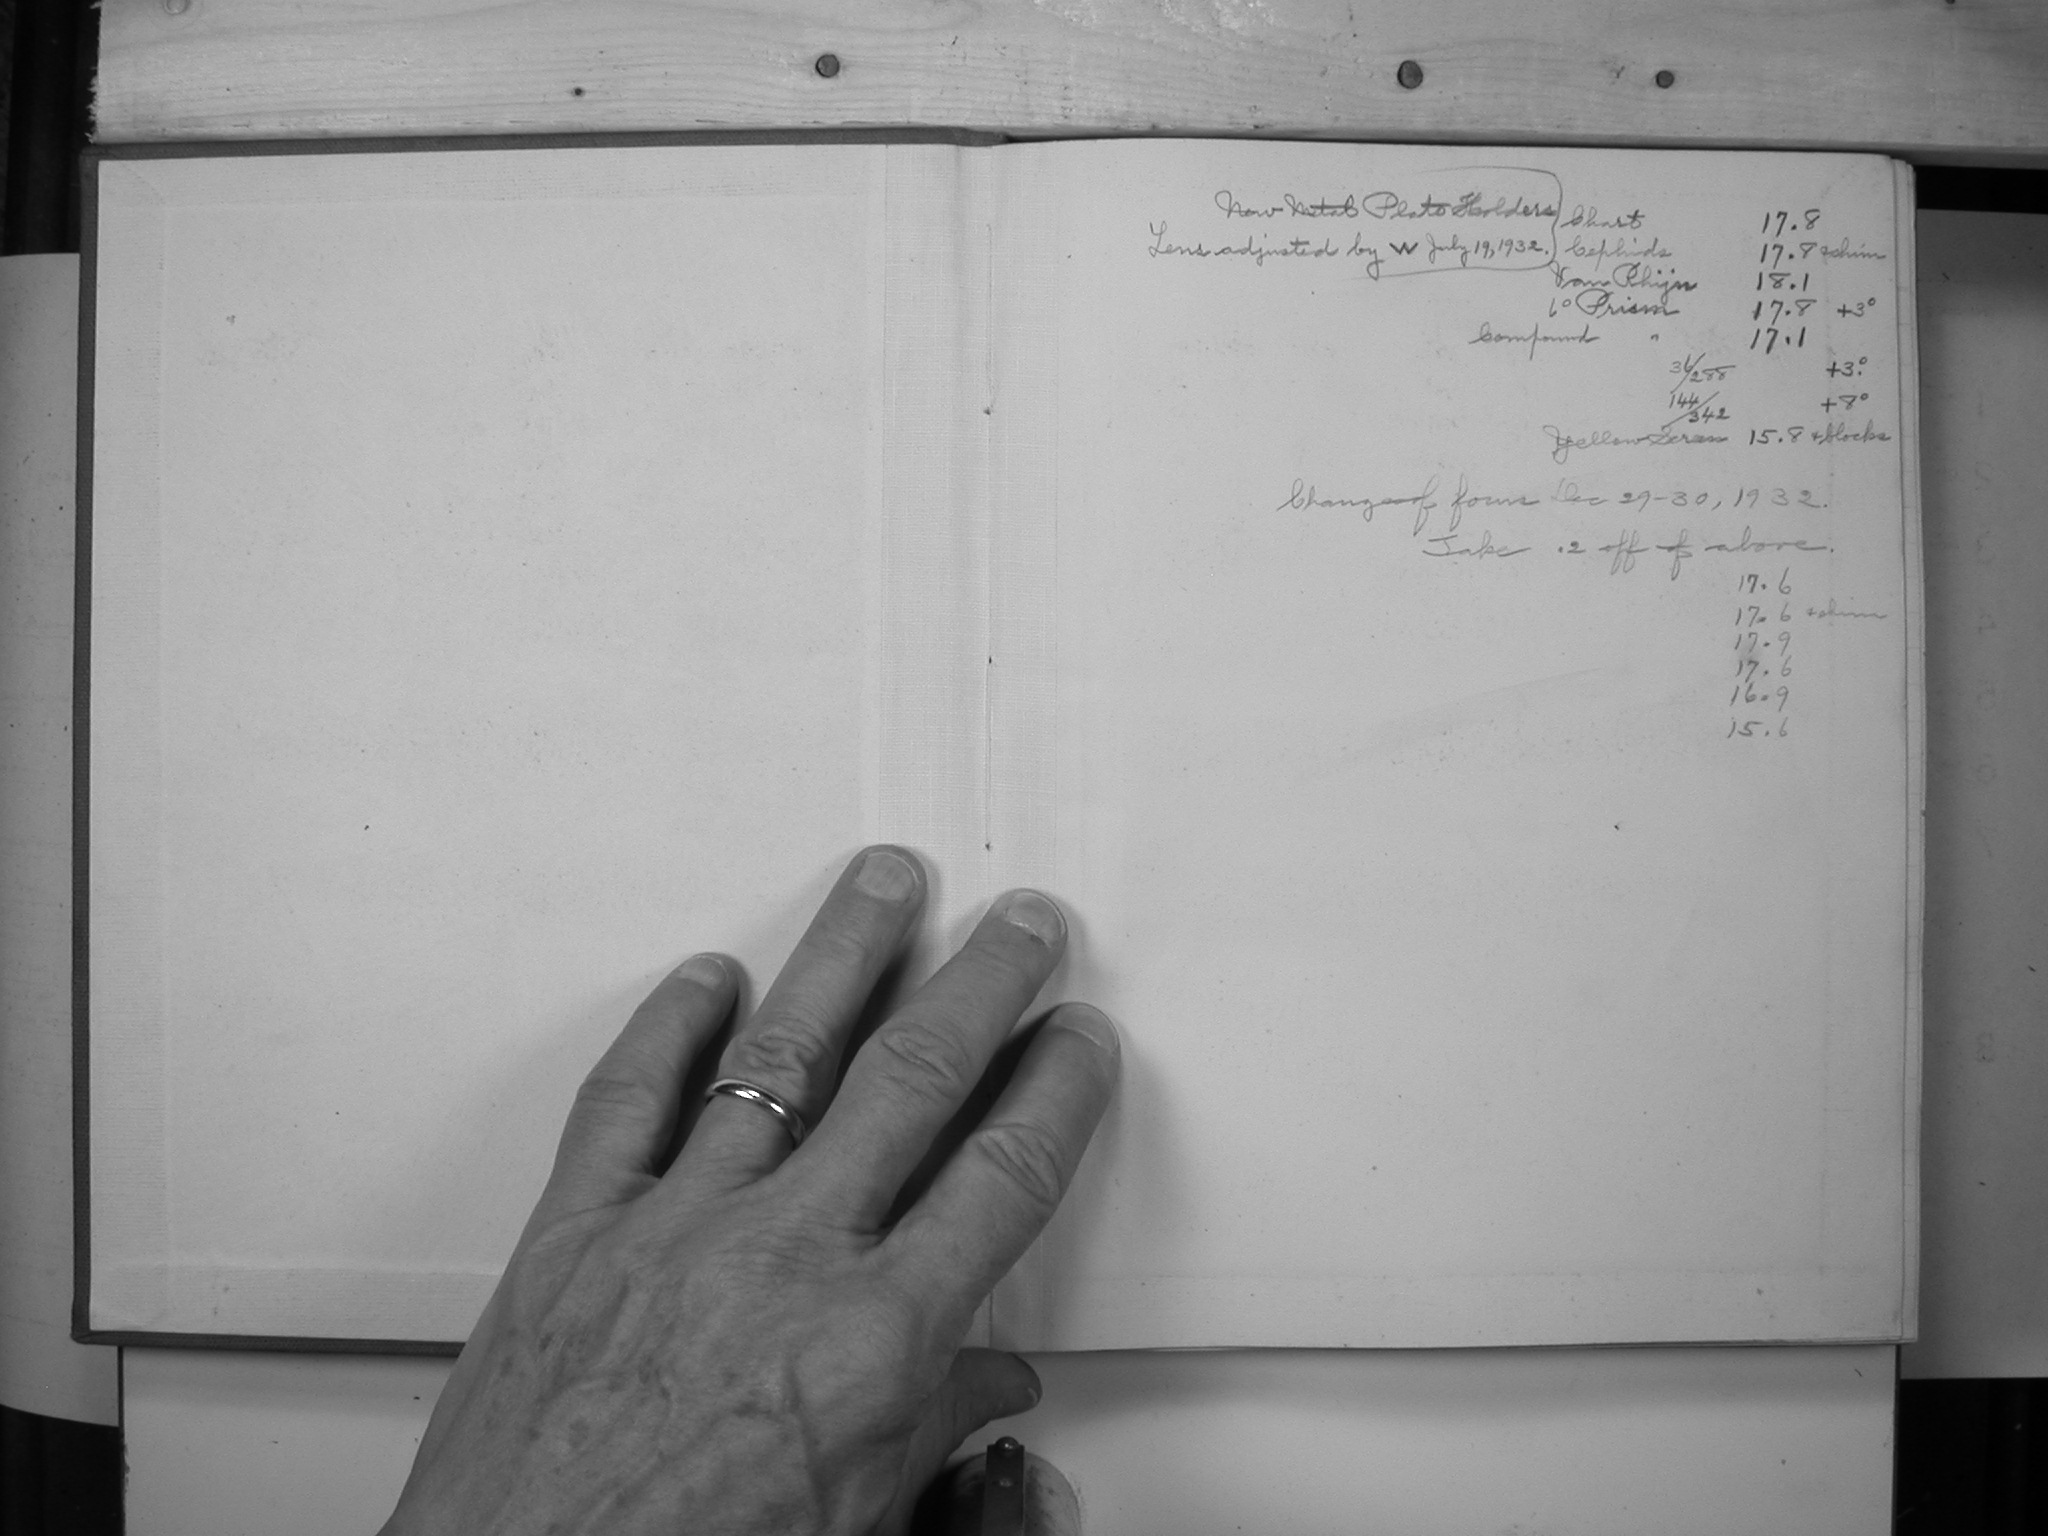 New Metal Plate Holders Chart 17.8
Lens adjusted by W July 19, 1932. Cephids 17.8 + shim
Van Rhijn 18.1
6° Prism 17.8 +3°
Compound " 17.1
36/288 +3°
144/342 +8°
Yellow Screen 15.8 + blocks
Change of focus Dec 29-30, 1932.
Take .2 off of above.
17.6
17.6 + shim
17.9
17.6
16.9
15.6